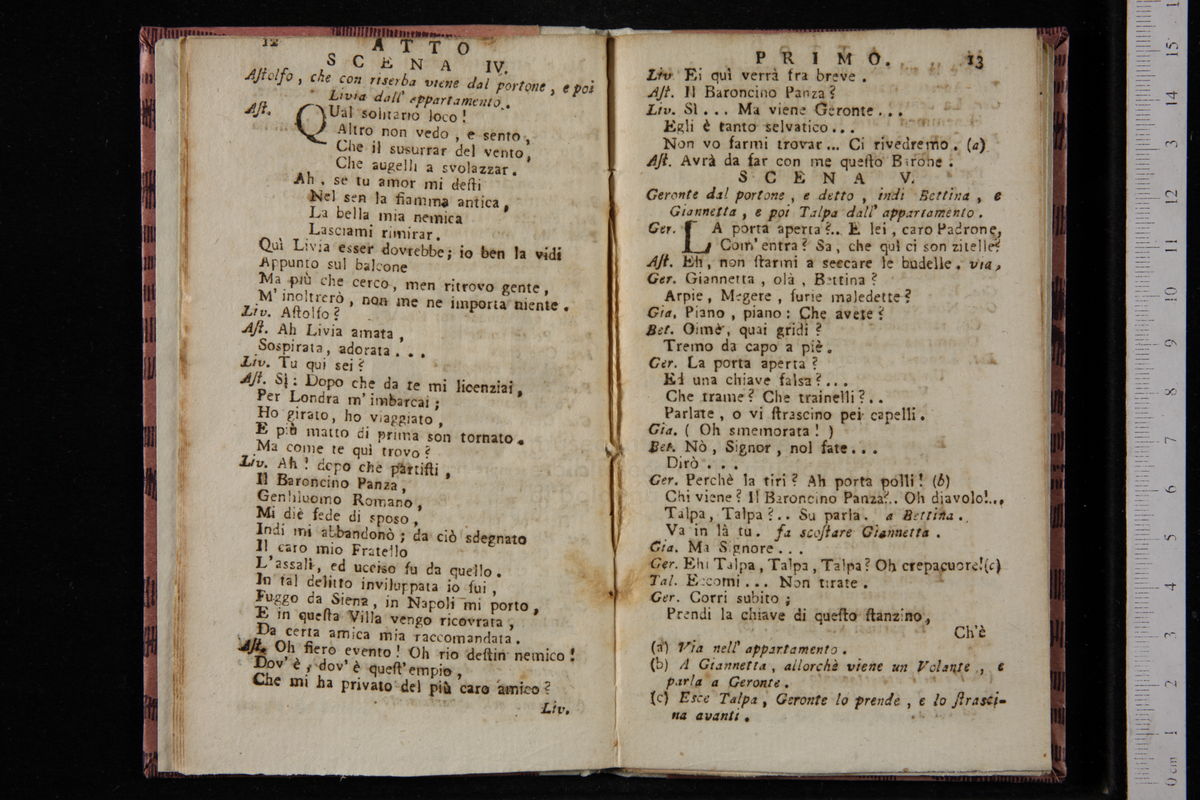 12
ATTO
SCENA IV.
Aſtolfo, che con riserba viene dal portone, e poi
Livia dall' appartamento.
Aſt. QUal solitario loco!
Altro non vedo, e sento,
Che il susurrar del vento,
Che augelli a svolazzar.
Ah, se tu amor mi deſti
Nel sen la fiamma antica,
La bella mia nemica
Lasciami rimirar.
Quì Livia esser dovrebbe; io ben la vidi
Appunto sul balcone
Ma più che cerco, men ritrovo gente,
M' inoltrerò, non me ne importa niente.
Liv. Aſtolfo?
Aſt. Ah Livia amata,
Sospirata, adorata...
Liv. Tu qui sei?
Aſt. Sì: Dopo che da te mi licenziai,
Per Londra m' imbarcai;
Ho girato, ho viaggiato,
E più matto di prima son tornato.
Ma come te quì trovo?
Liv. Ah! dopo che partiſti,
Il Baroncino Panza,
Gentiluomo Romano,
Mi diè fede di sposo,
Indi mi abbandonò; da ciò sdegnato
Il caro mio Fratello
L'assalì, ed ucciso fu da quello.
In tal delitto inviluppata io fui,
Fuggo da Siena, in Napoli mi porto,
E in queſta Villa vengo ricovrata,
Da certa amica mia raccomandata.
Aſt. Oh fiero evento! Oh rio deſtin nemico!
Dov' è, dov' è queſt' empio,
Che mi ha privato del più caro amico?
Liv.
PRIMO.
13
Liv. Ei quì verrà fra breve.
Aſt. Il Baroncino Panza?
Liv. Sì... Ma viene Geronte...
Egli è tanto selvatico...
Non vo farmi trovar... Ci rivedremo. (a)
Aſt. Avrà da far con me queſto Birone.
SCENA V.
Geronte dal portone, e detto, indi Bettina, e
Giannetta, e poi Talpa dall' appartamento.
Ger. LA porta aperta?.. E lei, caro Padrone,
Com' entra? Sa, che quì ci son zitelle?
Aſt. Eh, non ſtarmi a seccare le budelle. via,
Ger. Giannetta, olà, Bettina?
Arpie, Megere, furie maledette?
Gia. Piano, piano: Che avete?
Bet. Oimè, quai gridi?
Tremo da capo a piè.
Ger. La porta aperta?
Ed una chiave falsa?...
Che trame? Che trainelli?..
Parlate, o vi ſtrascino pei capelli.
Gia. (Oh smemorata!)
Bet. Nò, Signor, nol fate...
Dirò...
Ger. Perchè la tiri? Ah porta polli! (b)
Chi viene? Il Baroncino Panza?.. Oh diavolo!...
Talpa, Talpa?.. Su parla. a Bettina.
Va in là tu. fa scoſtare Giannetta.
Gia. Ma Signore...
Ger. Ehi Talpa, Talpa, Talpa? Oh crepacuore!(c)
Tal. Eccomi... Non tirate.
Ger. Corri subito;
Prendi la chiave di queſto ſtanzino,
Ch'è
(a) Via nell' appartamento.
(b) A Giannetta, allorchè viene un Volante, e
parla a Geronte.
(c) Esce Talpa, Geronte lo prende, e lo ſtrasci-
na avanti.